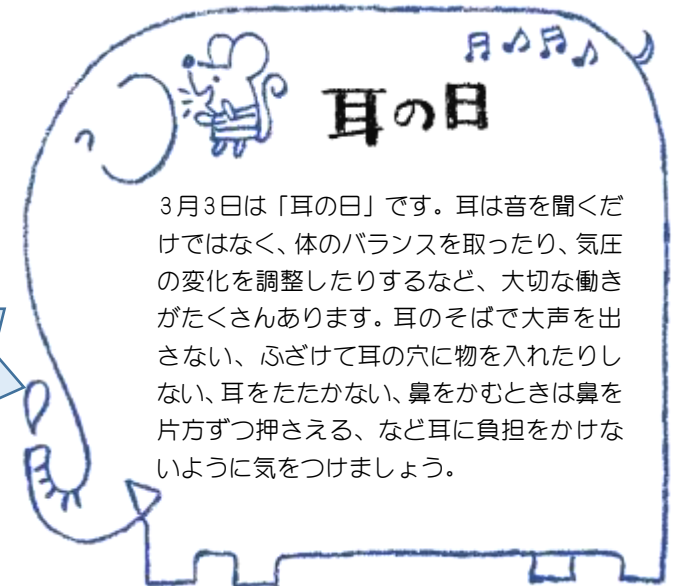 耳の日
3月3日は「耳の日」です。耳は音を聞くだ
けではなく、体のバランスを取ったり、気圧
の変化を調整したりするなど、大切な働き
がたくさんあります。耳のそばで大声を出
さない、ふざけて耳の穴に物を入れたりし
ない、耳をたたかない、鼻をかむときは鼻を
片方ずつ押さえる、など耳に負担をかけな
いように気をつけましょう。